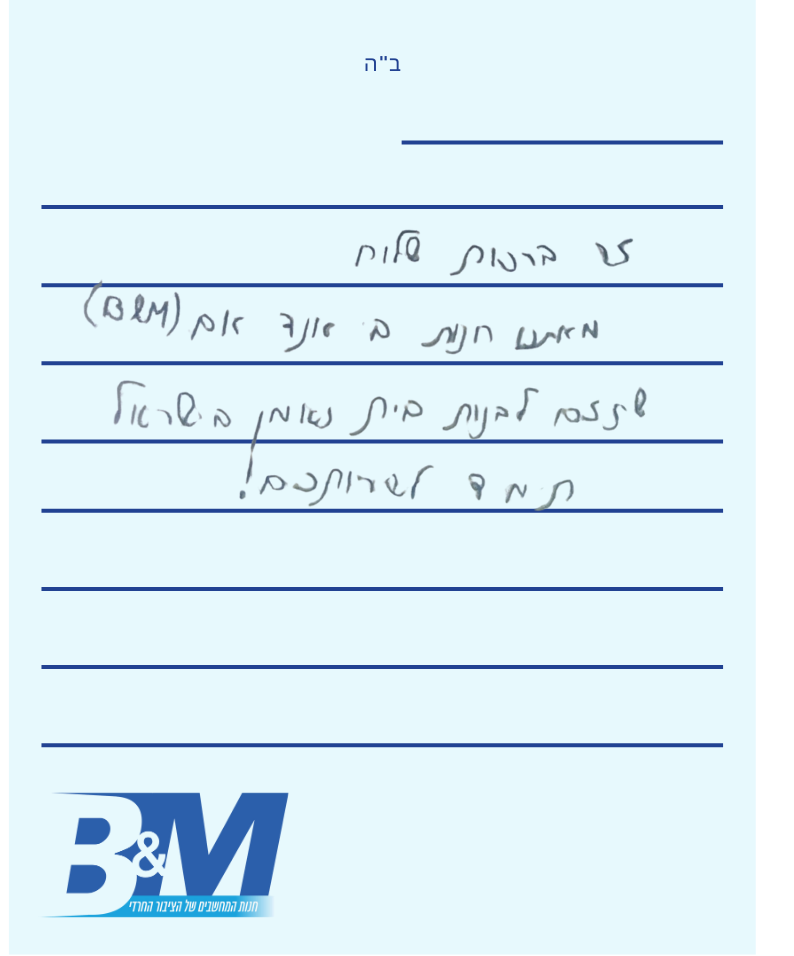 ב"ה
ברכות שלוח
מאתנו חנות בי אונד אם (B&M)
שיזכם לבנות בית נאמן בישראל
תמיד לשרותכם!
B&M
חנות המחשבים של הציבור החרדי